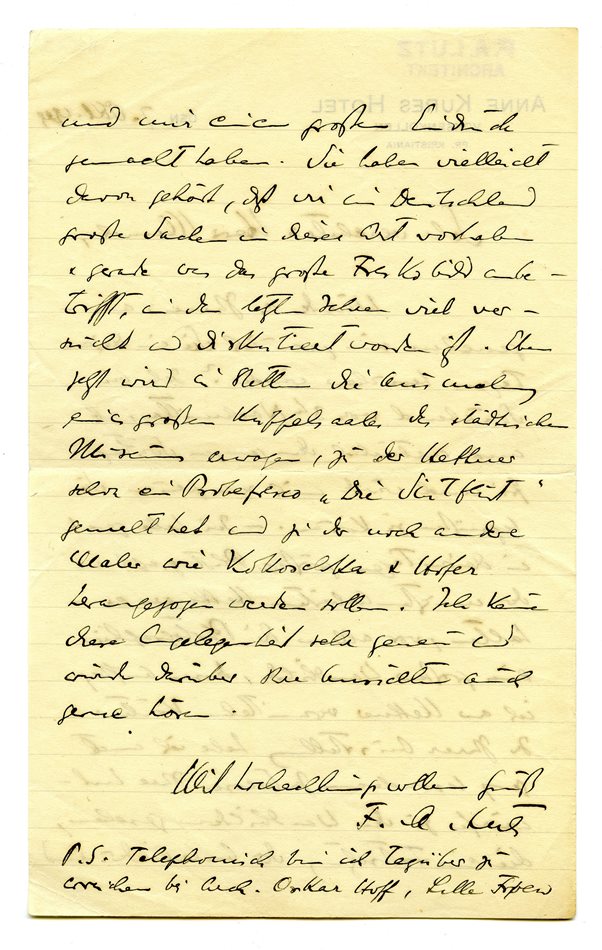 und mir einen großen Eindruck
gemacht haben. Sie haben vielleicht
davon gehört, daß wir in Deutschland
große Sachen in dieser Art vorhaben
& gerade was das große Freskobild anbe-
trifft, in den letzten Jahren viel ver-
sucht und diskutiert worden ist. Eben
jetzt wird in Stettin die Ausmalung
eines großen Kuppelsaales des städtischen
Museums erwogen, zu der
schon ein Probefresco „Die Sintflut"
gemalt hat und zu der noch andere
Maler wie Kokoschka & Hofer
herangezogen werden sollen. Ich kenne
diese Angelegenheit sehr genau und
würde darüber Ihre Ansichten auch
gerne hören.
Mit hochachtungsvollem Gruß
F. A. Lutz
P.S. Telephonisch bin ich tagsüber zu
erreichen bei Arch. Oskar Hoff, Lille Frøen
F. A. LUTZ
ARCHITEKT
ANNE KURES HOTEL
PR. KRISTIANIA
DEN